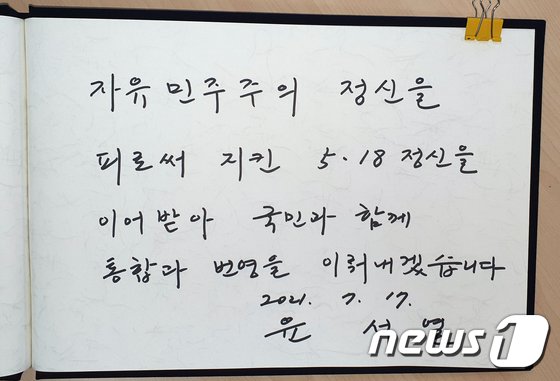 자유민주주의 정신을
피로써 지킨 5·18 정신을
이어받아 국민과 함께
통합과 번영을 이뤄내겠습니다
2021. 7. 17.
윤 석 열
news1